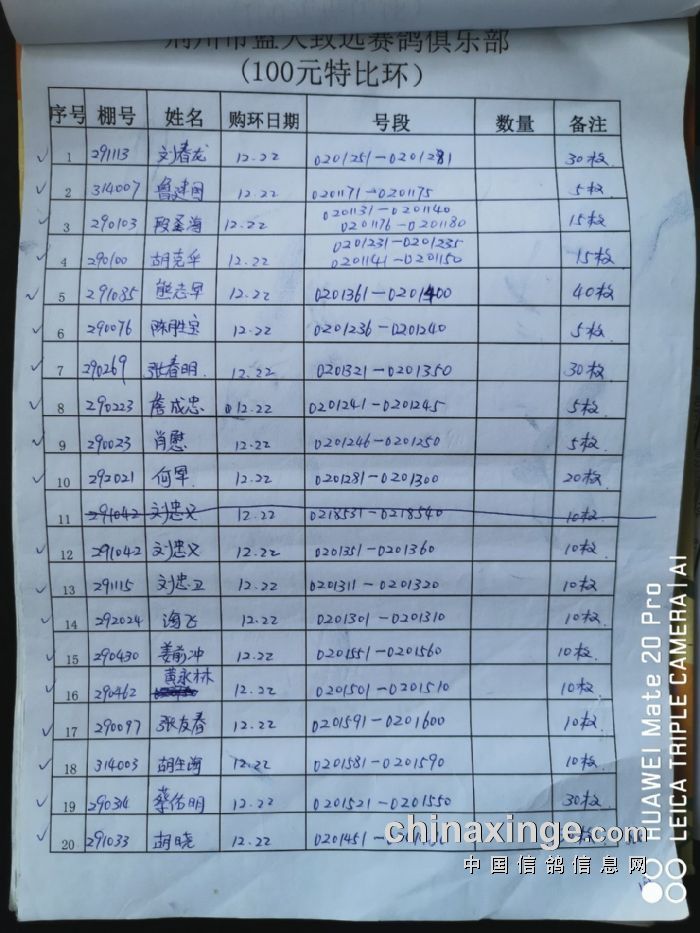 荆州市蓝天致远赛鸽俱乐部
(100元特比环)
序号 棚号 姓名 购环日期 号段 数量 备注
1 291113 刘春龙 12.22 0201251-0201281 30枚
2 314007 鲁建国 12.22 0201171-0201175 5枚
3 290103 段圣海 12.22 0201131-0201140 0201176-0201180 15枚
4 290100 胡克华 12.22 0201231-0201235 0201141-0201150 15枚
5 291035 熊志军 12.22 0201361-0201400 40枚
6 290076 陈胜宝 12.22 0201236-0201240 5枚
7 290269 张春明 12.22 0201321-0201350 30枚
8 290223 詹成忠 12.22 0201241-0201245 5枚
9 290023 肖慰 12.22 0201246-0201250 5枚
10 292021 何军 12.22 0201281-0201300 20枚
11 291042 刘忠义 12.22 0218531-0218540 10枚
12 291042 刘忠义 12.22 0201351-0201360 10枚
13 291115 刘忠卫 12.22 0201311-0201320 10枚
14 292024 飞 12.22 0201301-0201310 10枚
15 290430 姜前冲 12.22 0201551-0201560 10枚
16 290462 黄永林 12.22 0201501-0201510 10枚
17 290097 张友春 12.22 0201591-0201600 10枚
18 314003 胡生海 12.22 0201581-0201590 10枚
19 290314 蔡佑明 12.22 0201521-0201550 30枚
20 291033 胡晓 12.22 0201451- 枚
chinaxinge.com
中国信鸽信息网
HUAWEI Mate 20 Pro
LEICA TRIPLE CAMERA | AI